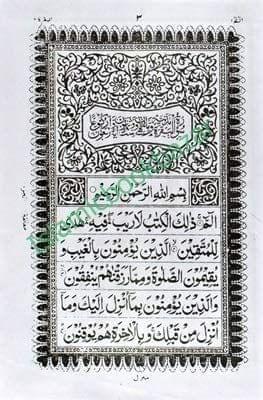 ٢
بِسْمِ اللهِ الرَّحْمٰنِ الرَّحِيْمِ
الٓمّٓ ذٰلِكَ الْكِتٰبُ لَا رَيْبَ فِيْهِ هُدًى
لِّلْمُتَّقِيْنَ الَّذِيْنَ يُؤْمِنُوْنَ بِالْغَيْبِ وَ
يُقِيْمُوْنَ الصَّلٰوةَ وَمِمَّا رَزَقْنٰهُمْ يُنْفِقُوْنَ
وَالَّذِيْنَ يُؤْمِنُوْنَ بِمَآ اُنْزِلَ اِلَيْكَ وَمَآ
اُنْزِلَ مِنْ قَبْلِكَ وَبِالْاٰخِرَةِ هُمْ يُوْقِنُوْنَ